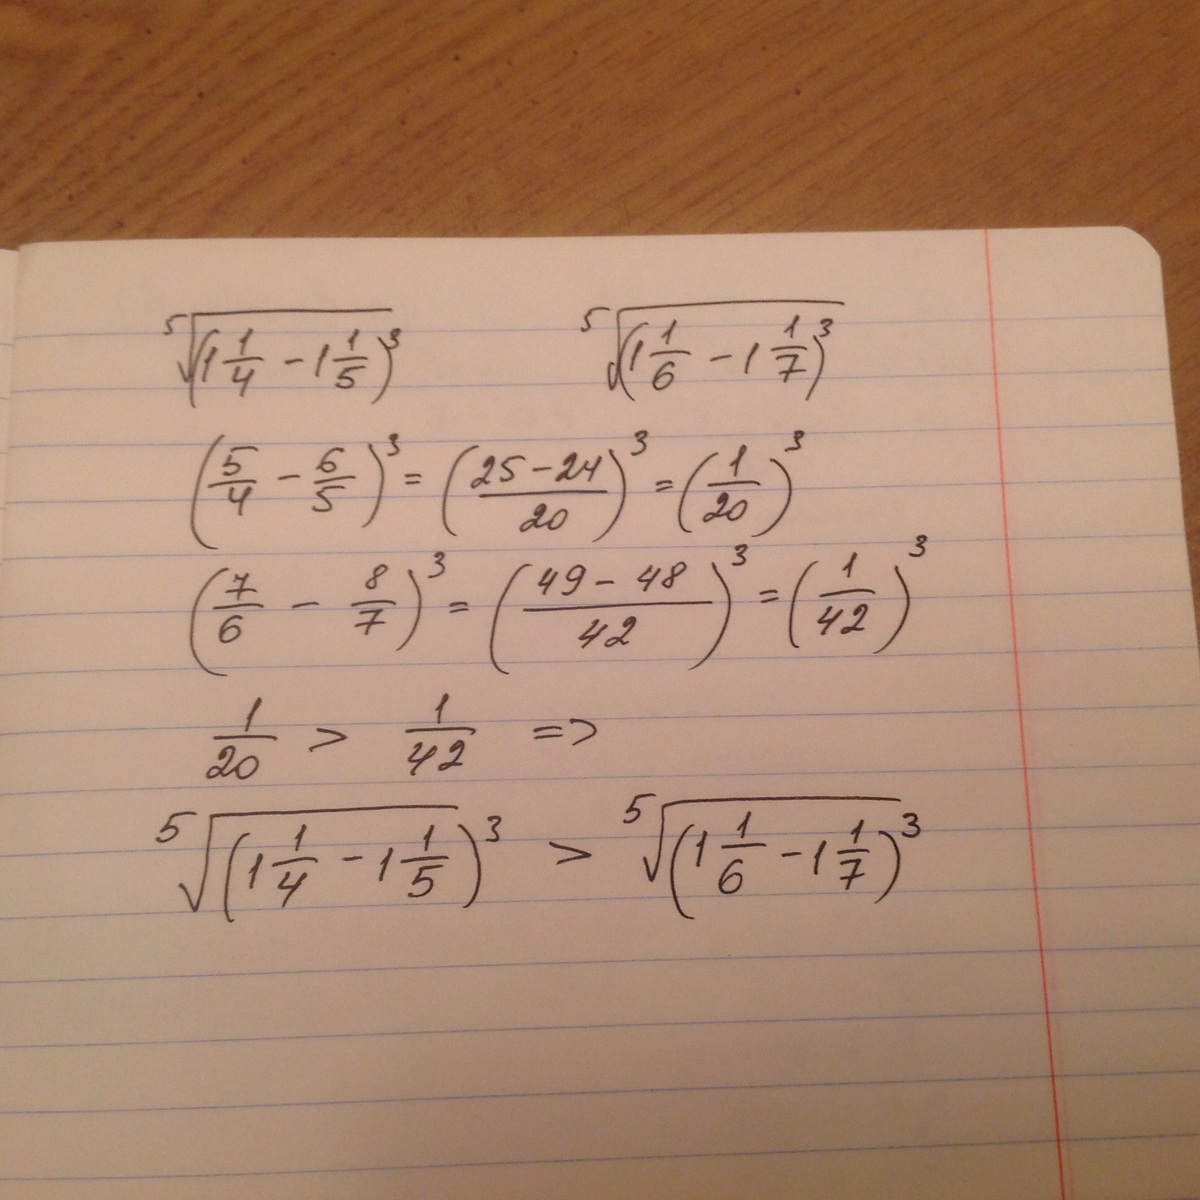 ⁵√(1 1/4 − 1 1/5)³   ⁵√(1 1/6 − 1 1/7)³
(5/4 − 6/5)³ = ((25 − 24)/20)³ = (1/20)³
(7/6 − 8/7)³ = ((49 − 48)/42)³ = (1/42)³
1/20 > 1/42 =>
⁵√(1 1/4 − 1 1/5)³ > ⁵√(1 1/6 − 1 1/7)³